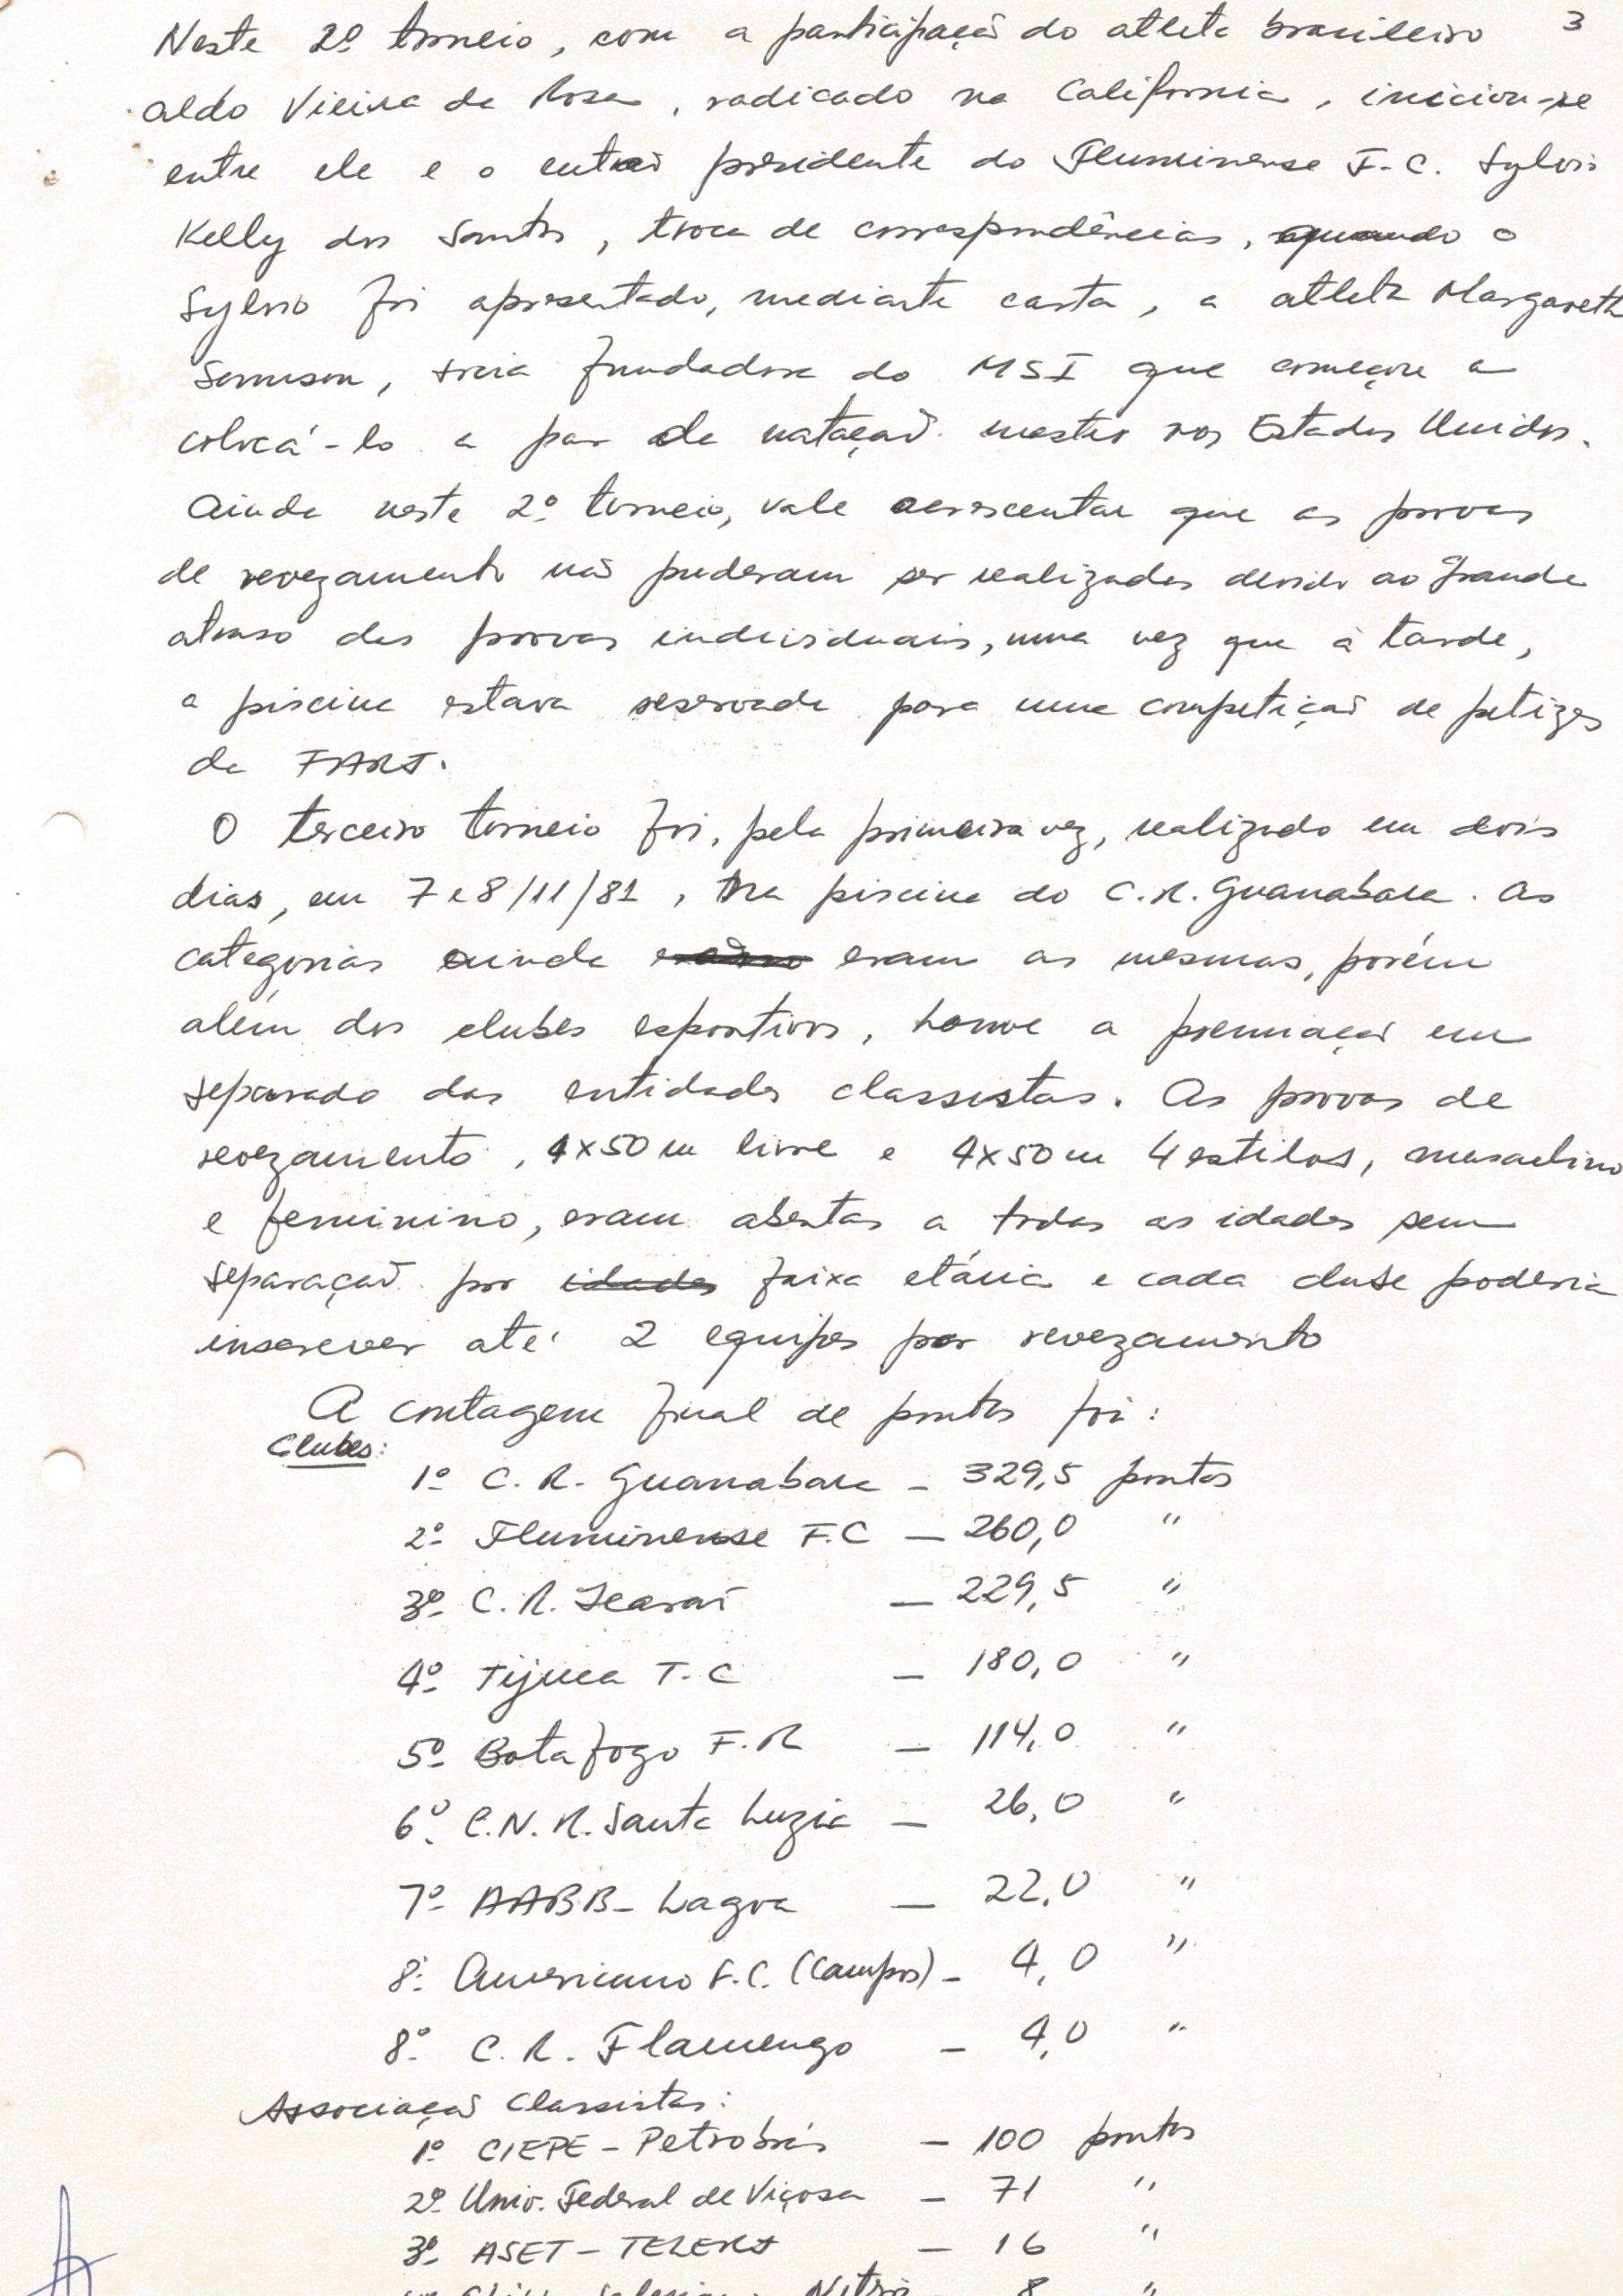 3
Neste 2º torneio, com a participação do atleta brasileiro
Aldo Vieira da Rosa, radicado na California, iniciou-se
entre ele e o então presidente do Fluminense F.C. Sylvio
Kelly dos Santos, troca de correspondências, quando o
Sylvio foi apresentado, mediante carta, a atleta Margareth
, sócia fundadora do MSI que começou a
colocá-lo a par da natação master nos Estados Unidos.
Ainda neste 2º torneio, vale acrescentar que as provas
de revezamento não puderam ser realizadas devido ao grande
atraso das provas individuais, uma vez que à tarde,
a piscina estava reservada para uma competição de petizes
da FARJ.
O terceiro torneio foi, pela primeira vez, realizado em dois
dias, em 7 e 8/11/81, na piscina do C.R. Guanabara. As
categorias ainda eram as mesmas, porém
além dos clubes esportivos, houve a premiação em
separado das entidades classistas. As provas de
revezamento, 4x50m livre e 4x50m 4 estilos, masculino
e feminino, eram abertas a todas as idades sem
separação por idades faixa etária e cada clube poderia
inscrever até 2 equipes por revezamento
A contagem final de pontos foi:
Clubes:
1º C. R. Guanabara - 329,5 pontos
2º Fluminense F.C - 260,0 "
3º C.R. Icaraí - 229,5 "
4º Tijuca T.C - 180,0 "
5º Botafogo F.R - 114,0 "
6º C.N.R. Santa Luzia - 26,0 "
7º AABB - Lagoa - 22,0 "
8º Americano F.C. (Campos) - 4,0 "
8º C.R. Flamengo - 4,0 "
Associação Classistas:
1º CIEPE - Petrobrás - 100 pontos
2º Univ. Federal de Viçosa - 71 "
3º ASET - TELERJ - 16 "
8 "